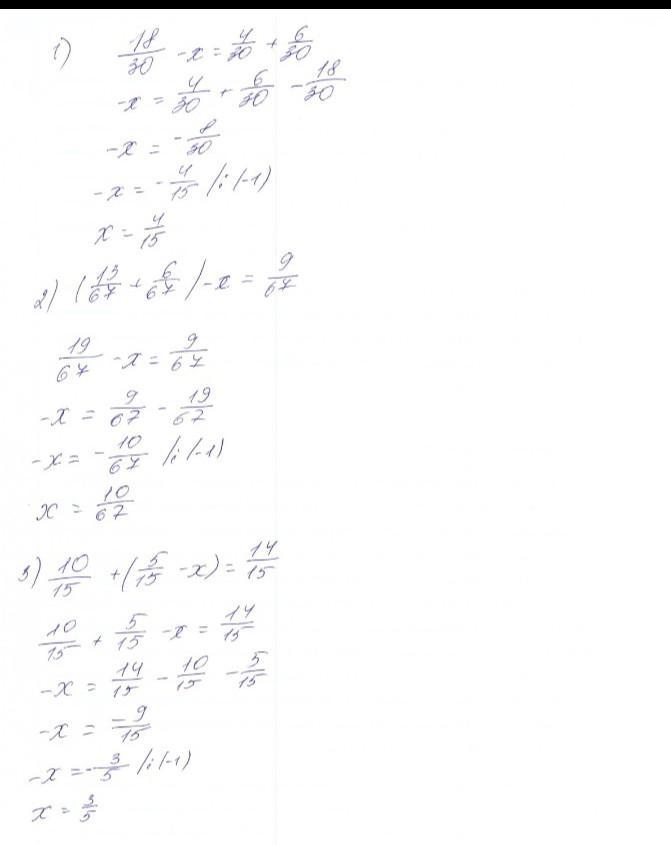 1) 18/30 - x = 4/30 + 6/30
-x = 4/30 + 6/30 - 18/30
-x = -8/30
-x = -4/15 /:(-1)
x = 4/15
2) (13/67 + 6/67) - x = 9/67
19/67 - x = 9/67
-x = 9/67 - 19/67
-x = -10/67 /:(-1)
x = 10/67
3) 10/15 + (5/15 - x) = 14/15
10/15 + 5/15 - x = 14/15
-x = 14/15 - 10/15 - 5/15
-x = -9/15
-x = -3/5 /:(-1)
x = 3/5